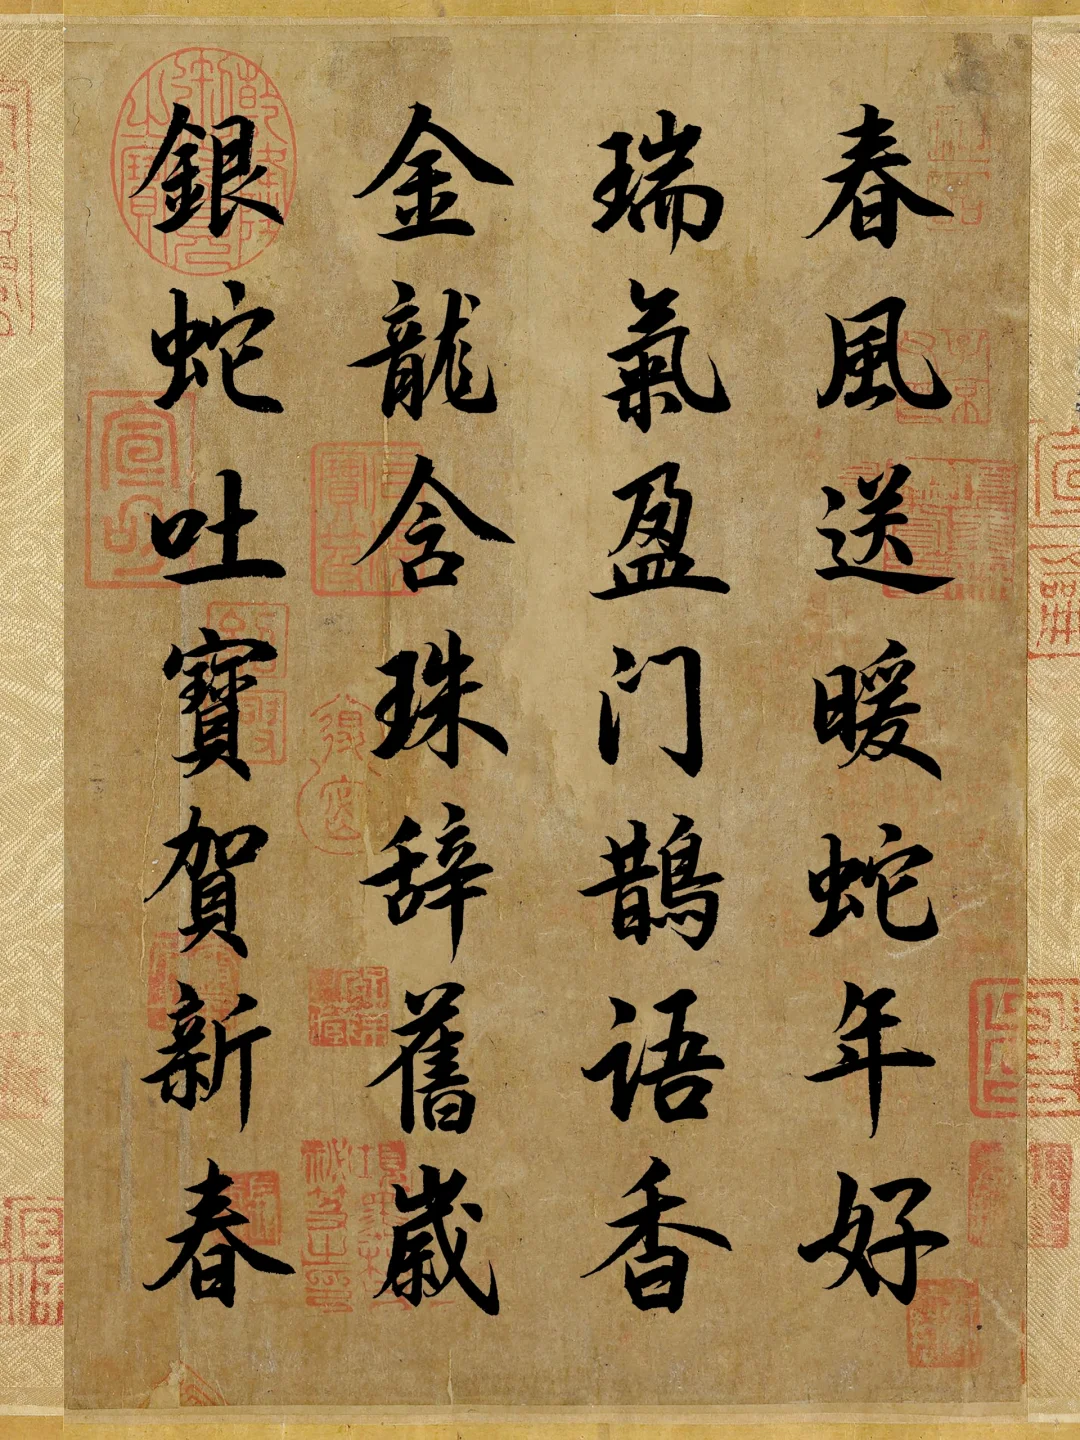 春風送暖蛇年好
瑞氣盈门鵲语香
金龍含珠辞舊歲
銀蛇吐寶賀新春